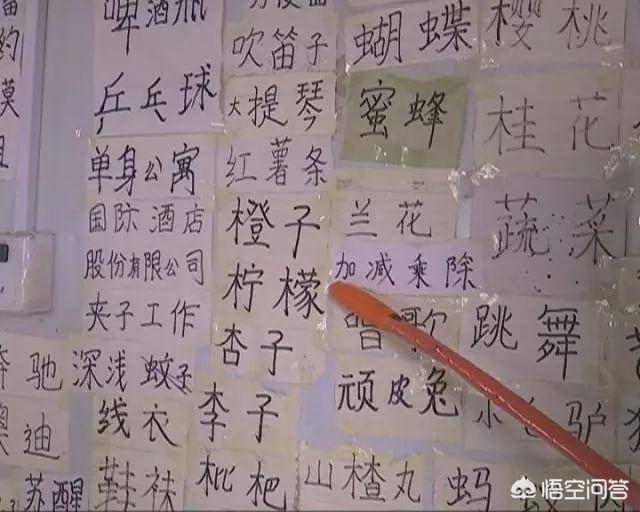 啤酒瓶
乒乓球
单身公寓
国际酒店
股份有限公司
夹子工作
深浅 蚊子
线衣
鞋袜
驰
迪
苏醒
吹笛子
大提琴
红薯条
橙子
柠檬
杏子
李子
枇杷
蝴蝶
蜜蜂
兰花
加减乘除
唱歌
顽皮兔
山楂丸
樱桃
桂花
蔬菜
跳舞
小毛驴
悟空问答